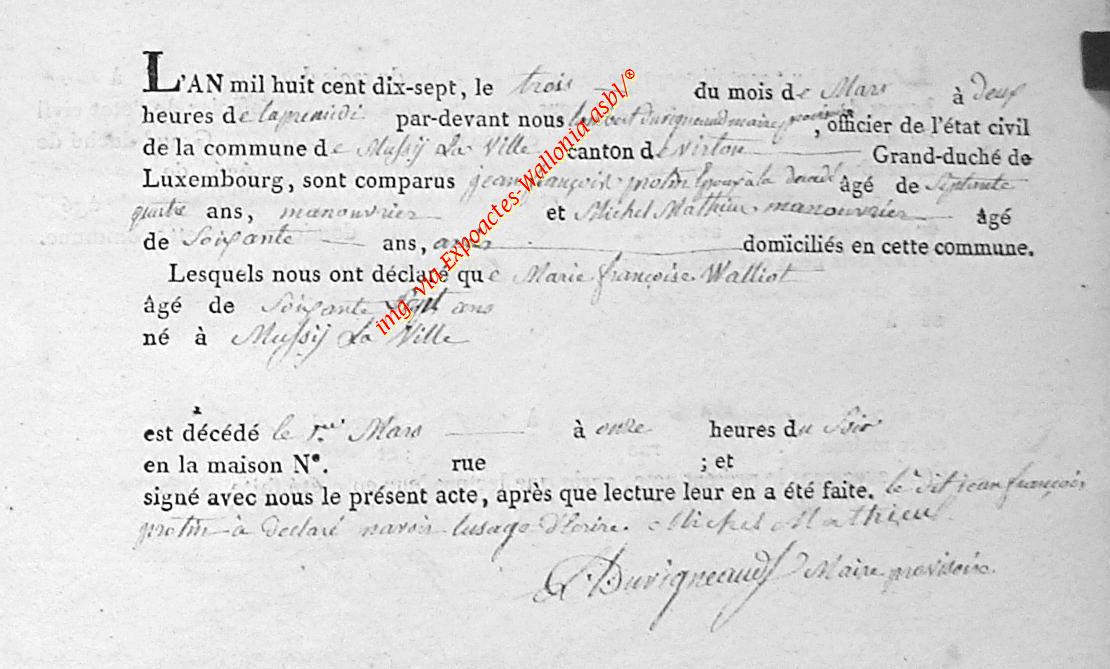 L'AN mil huit cent dix-sept, le trois du mois de Mars à deux
heures de lapremidi par-devant nous Lambert Duvigneaud maire provisoire, officier de l'état civil
de la commune de Mussÿ La Ville canton de virton Grand-duché de
Luxembourg, sont comparus jean françois protin Epoux a la âgé de Septente
quatre ans, manouvrier et Michel Mathieu manouvrier âgé
de Soixante ans, domiciliés en cette commune.
Lesquels nous ont déclaré que Marie françoise Walliot
âgé de Soixante Sept ans
né à Mussÿ La Ville
est décédé le 1er Mars à onze heures du Soir
en la maison N°. rue ; et
signé avec nous le présent acte, après que lecture leur en a été faite. le dit jean françois
protin à declaré navoir lusage d'Ecrire. Michel Mathieu
Duvigneaud Maire provisoire.
img via Expoactes-Wallonia asbl/®